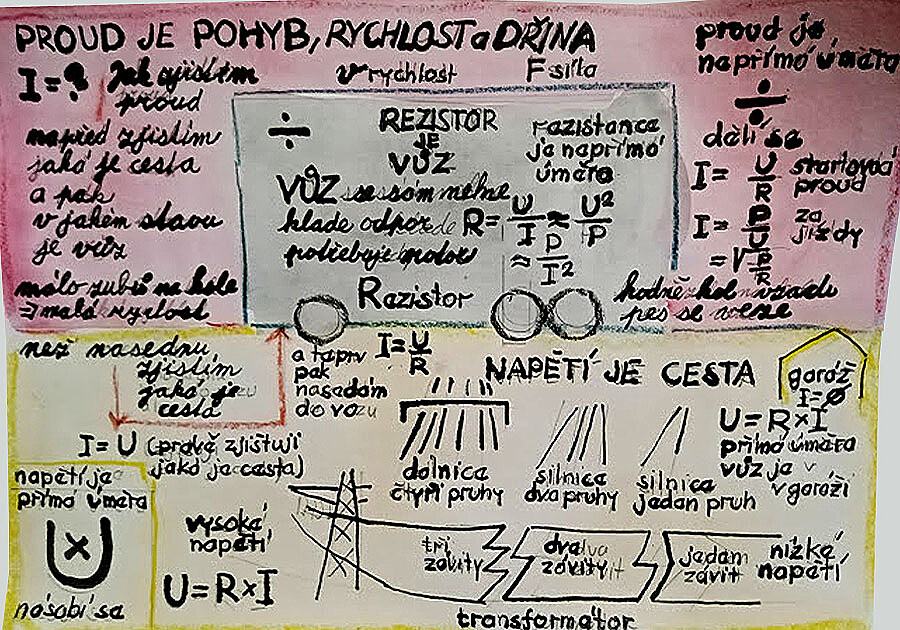 PROUD JE POHYB, RYCHLOST a DŘINA
v rychlost
F síla
I = ? Jak zjistím
proud
napřed zjistím
jaká je cesta
a pak
v jakém stavu
je vůz
málo zubů na kole
⇒ malá rychlost
÷
REZISTOR
JE
VŮZ
VŮZ se sám
klade odpor
potřebuje
Razistor
razistance
je napřímo
úměra
R = U/I ≈ U²/P
≈ P/I²
proud je
napřímo úměra
÷
dělí se
I = U/R startovací
proud
I = P/U za
jízdy
= √P/R
hodně kol vzadu
pes se veze
než nasednu,
zjistím
jaká je
cesta
a teprv
pak
nasedám
do vozu
I = U/R
I = U (právě zjišťuji
jaká je cesta)
NAPĚTÍ JE CESTA
dálnice
čtyři pruhy
silnice
dva pruhy
silnice
jedan pruh
garáž
I = Ø
U = R × I
přímá úměra
vůz je v
garáži
napětí je
přímá úměra
U
×
násobí sa
vysoké
napětí
U = R × I
tři
závity
dva
závity
jadan
závit
nízké
napětí
transformátor